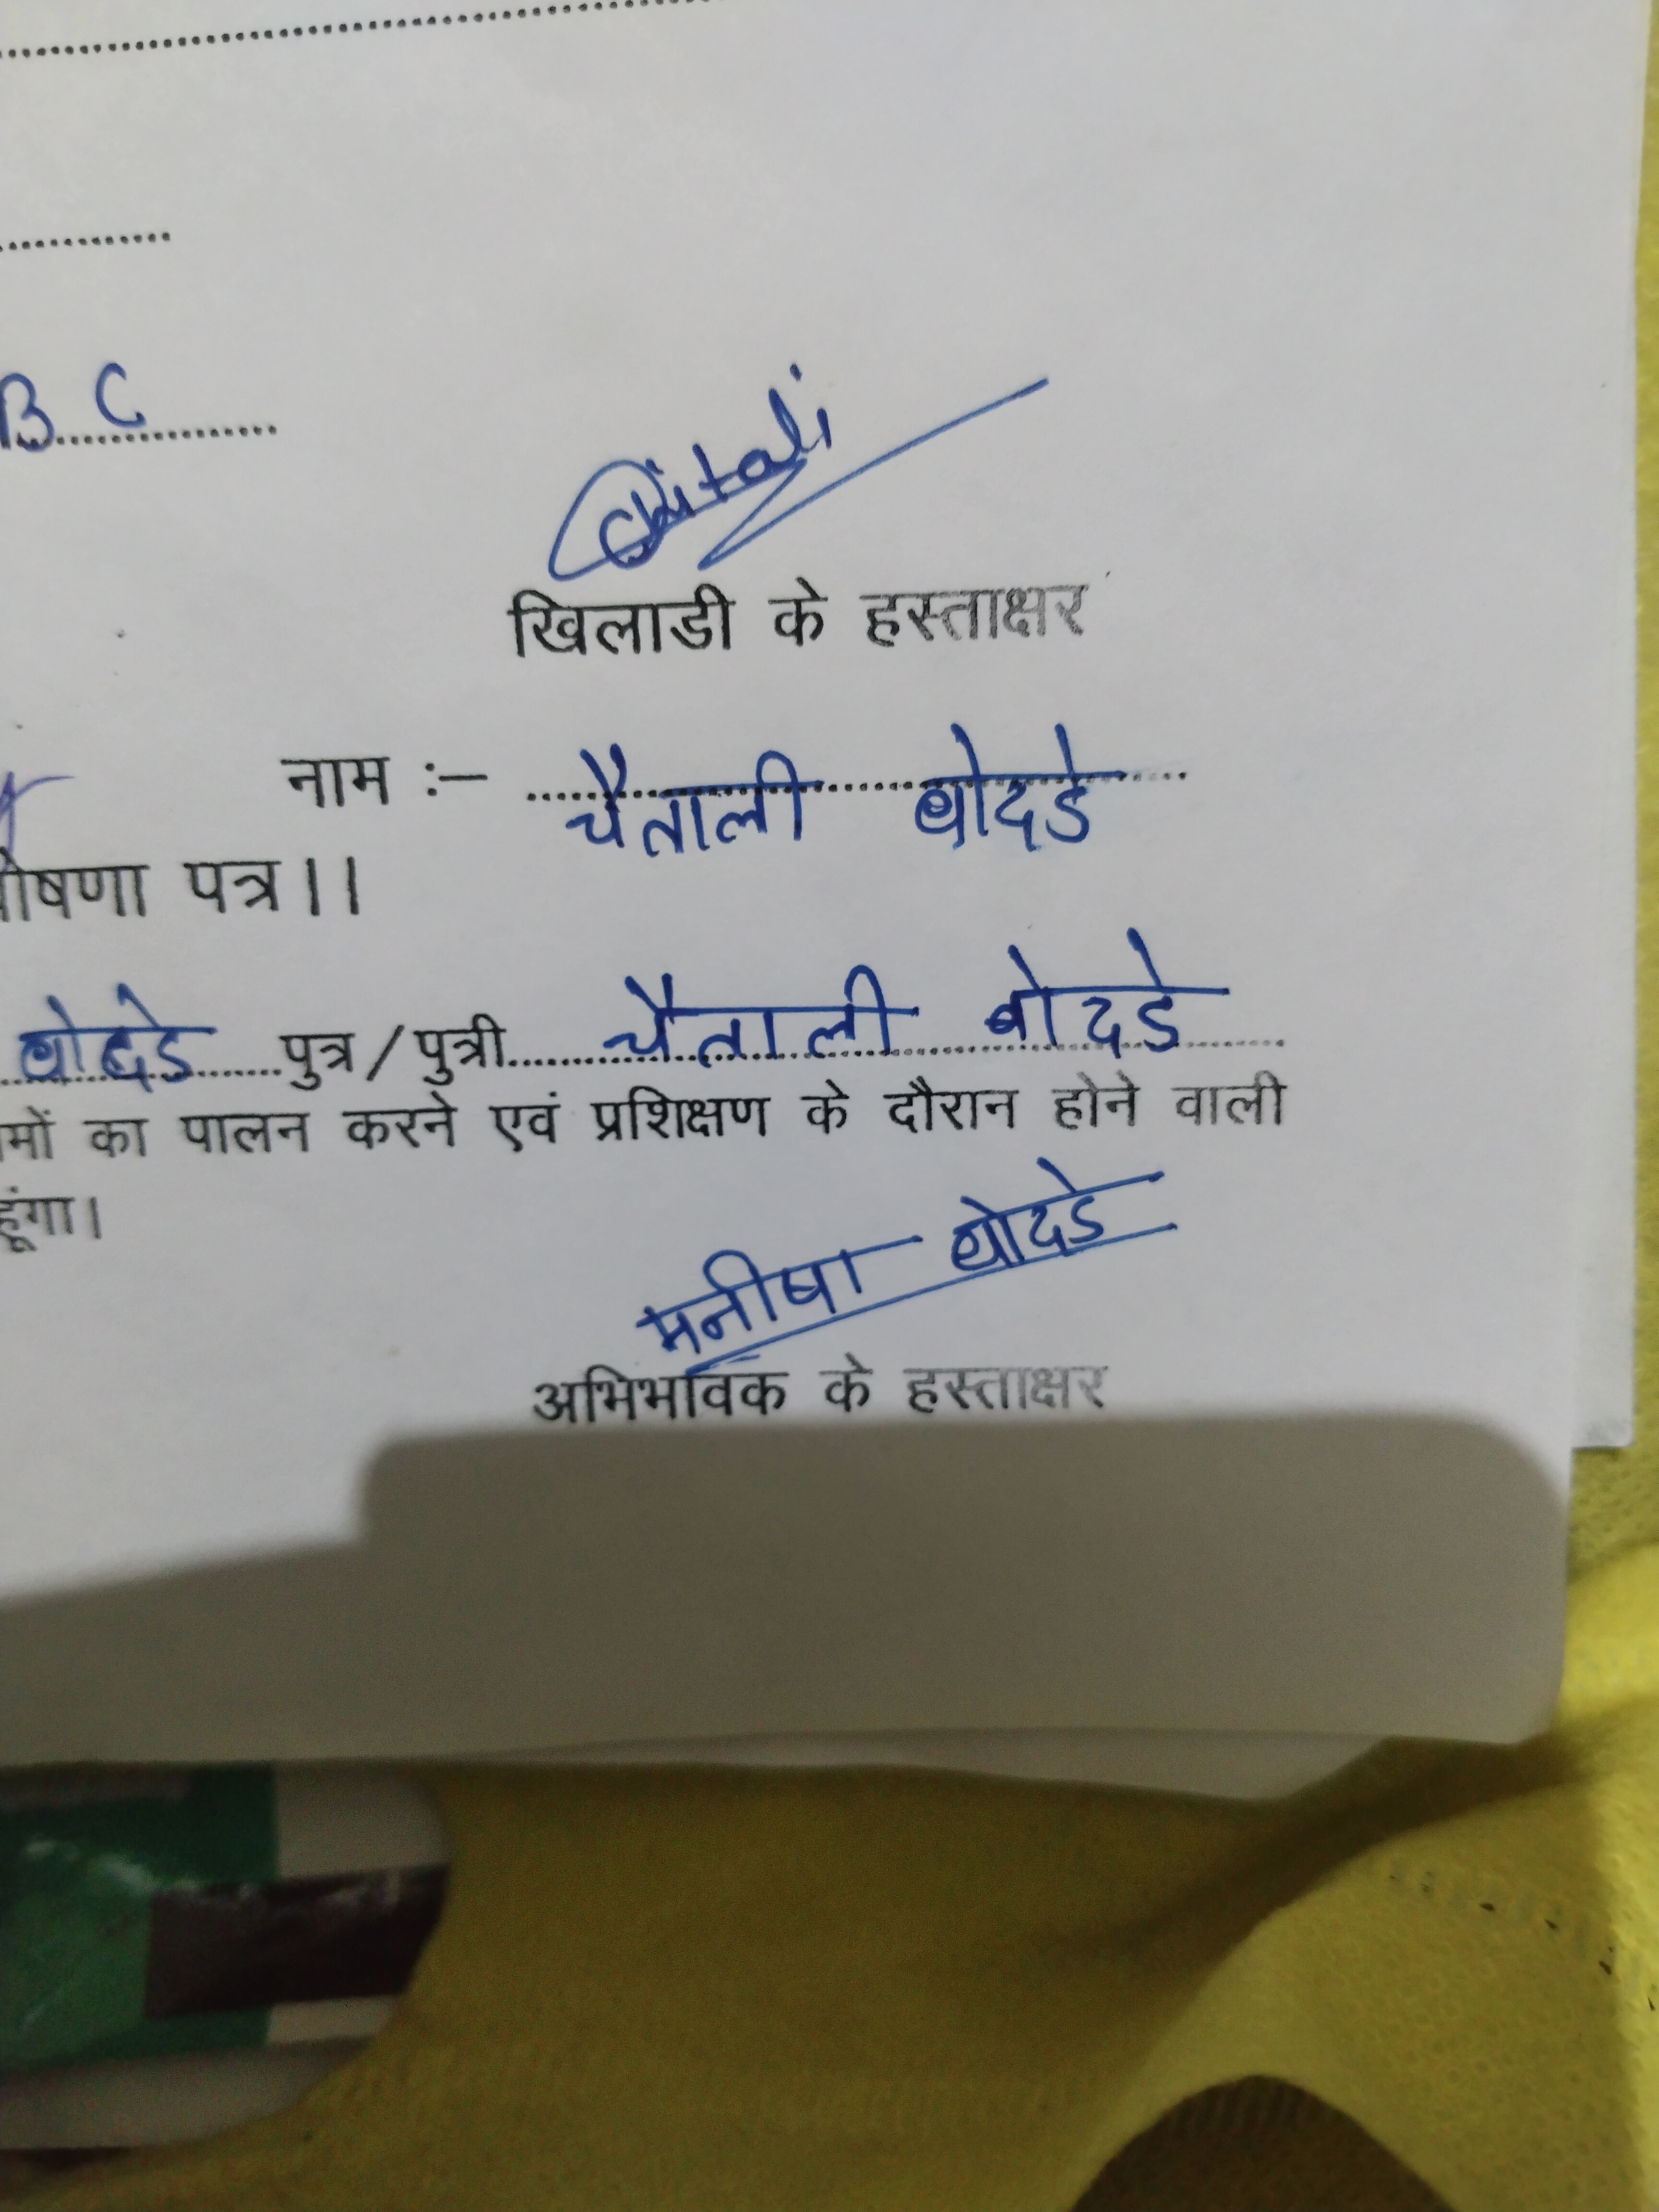 B C
Chitali
खिलाडी के हस्ताक्षर
नाम :– चैताली बोदडे
घोषणा पत्र।।
बोदडे पुत्र/पुत्री चैताली बोदडे
मों का पालन करने एवं प्रशिक्षण के दौरान होने वाली
हूंगा।
मनीषा बोदडे
अभिभावक के हस्ताक्षर